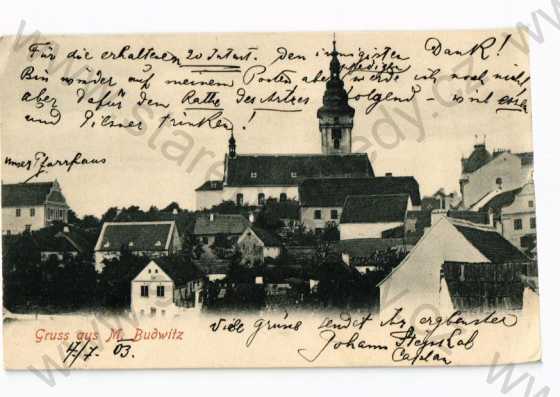 Für die erhaltenen 20 Inturt. den innigsten Dank!
Bin wieder auf meinem Posten aber predigen werde ich noch nicht
aber dafür dem Rathe des Arztes folgend - viel essen
und Pilsner trinken!
unser Pfarrhaus
Gruss aus M. Budwitz
17/7. 03.
Viele Grüße sendet Ihr ergbenster
Johann
Caplan